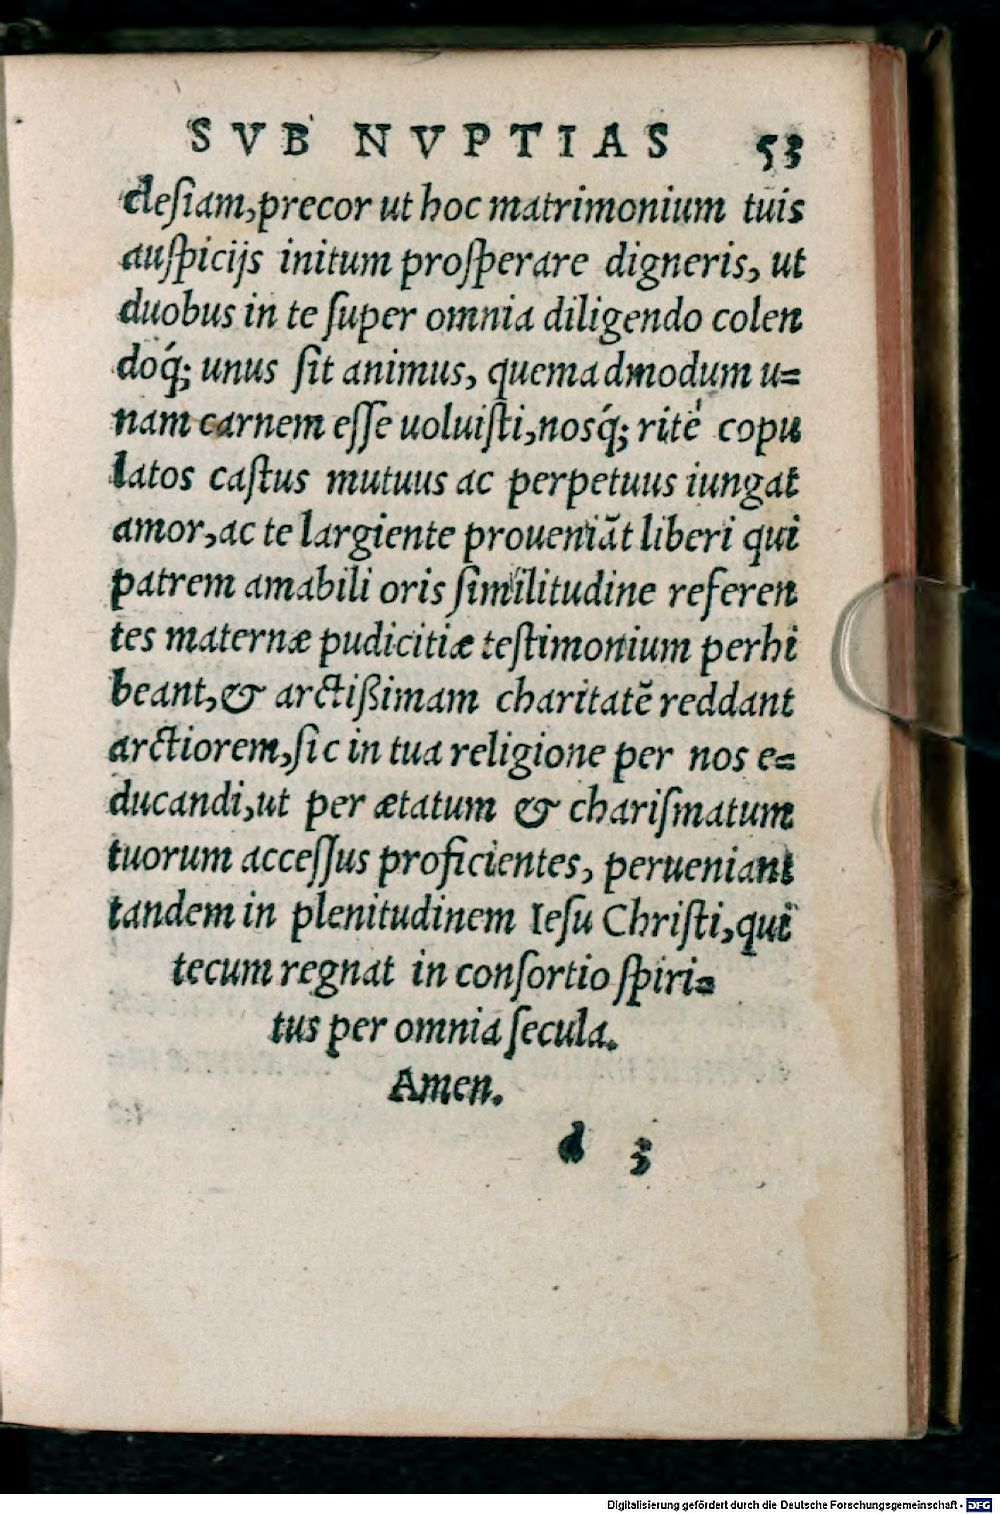 SVB NVPTIAS 53
clesiam, precor ut hoc matrimonium tuis
auſpicijs initum proſperare digneris, ut
duobus in te ſuper omnia diligendo colen
doq́; unus ſit animus, quemadmodum u=
nam carnem eſſe uoluiſti, nosq́; ritè copu
latos caſtus mutuus ac perpetuus iungat
amor, ac te largiente proueniãt liberi qui
patrem amabili oris ſimilitudine referen
tes maternæ pudicitiæ teſtimonium perhi
beant, & arctißimam charitatẽ reddant
arctiorem, ſic in tua religione per nos e=
ducandi, ut per ætatum & chariſmatum
tuorum acceſſus proficientes, perueniant
tandem in plenitudinem Ieſu Chriſti, qui
tecum regnat in conſortio ſpiri=
tus per omnia ſecula.
Amen.
d 3
Digitalisierung gefördert durch die Deutsche Forschungsgemeinschaft - DFG